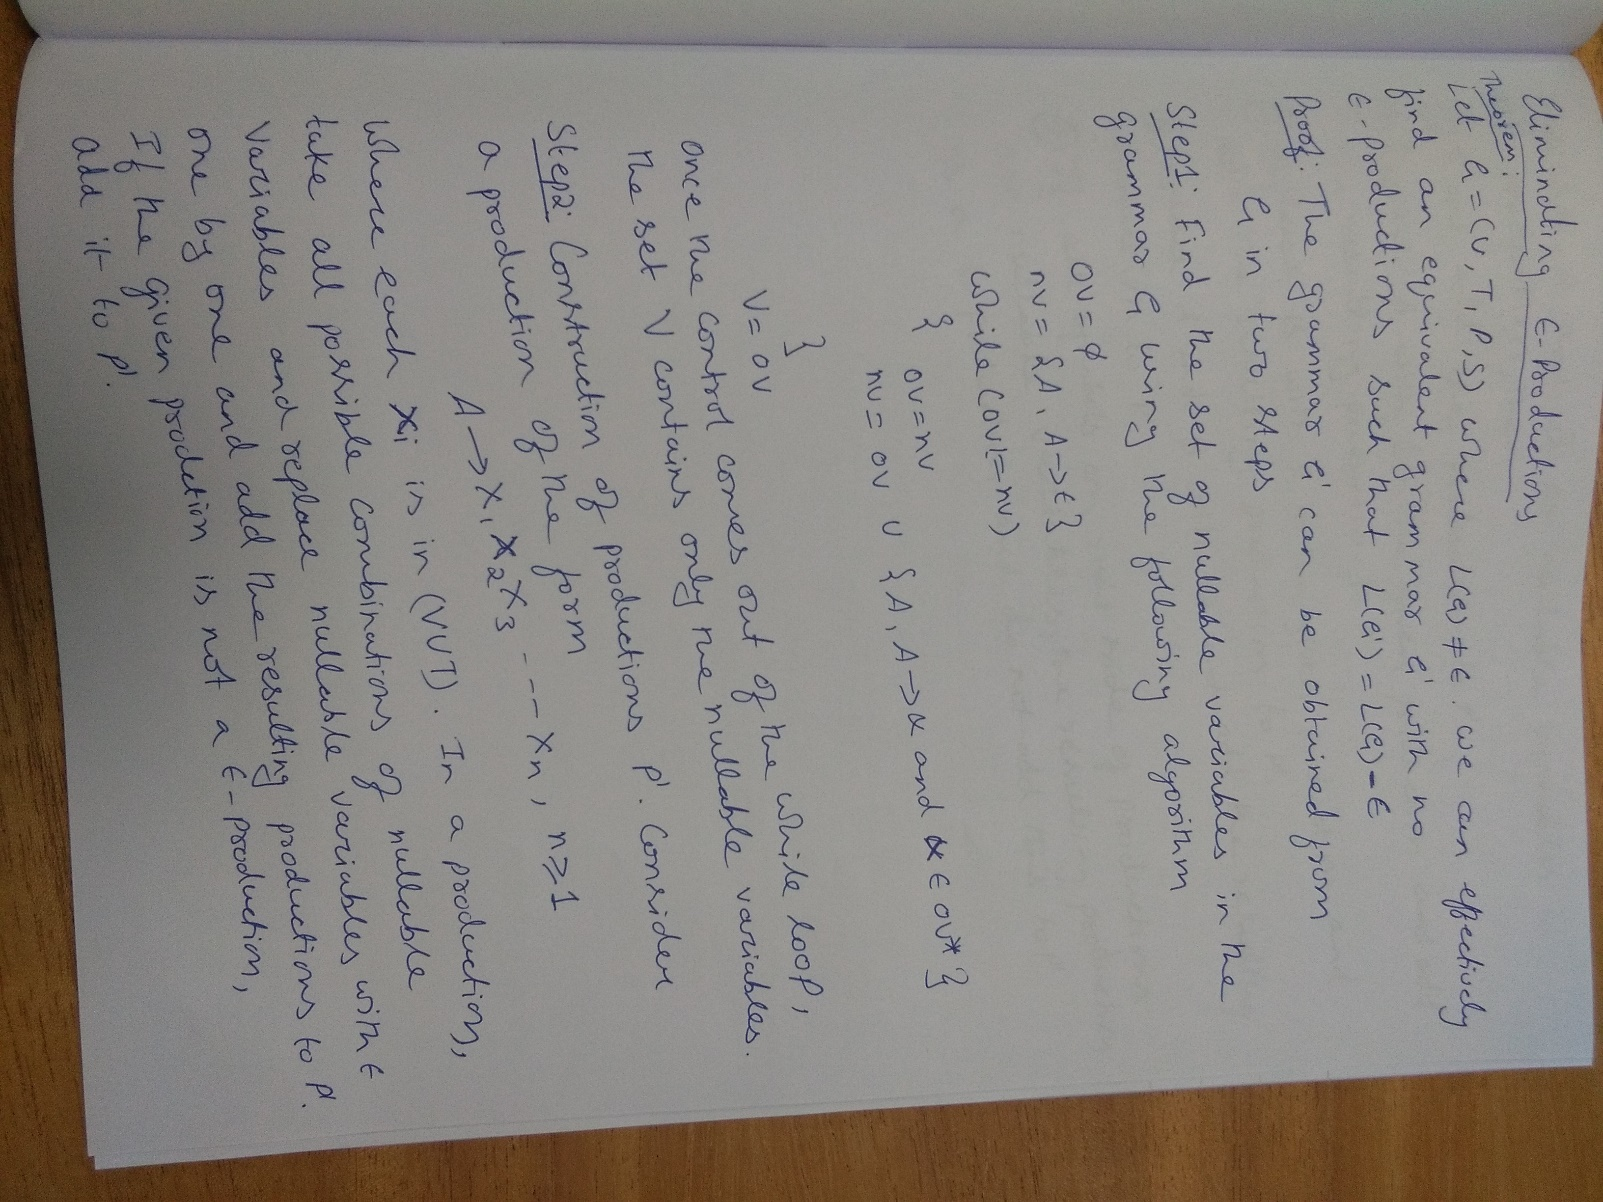 Eliminating ϵ-Productions
Theorem:
Let G = (V, T, P, S) where L(G) ≠ ϵ. we can effectively
find an equivalent grammar G' with no
ϵ-productions such that L(G') = L(G) - ϵ
Proof: The grammar G' can be obtained from
G in two steps
Step1: Find the set of nullable variables in the
grammar G using the following algorithm
OV = ϕ
nv = {A, A → ϵ}
while (OV != nv)
{
OV = nv
nv = OV ∪ {A, A → α and α ∈ OV* }
}
V = OV
Once the control comes out of the while loop,
the set V contains only the nullable variables.
Step2: Construction of productions P'. Consider
a production of the form
A → X₁ X₂ X₃ - - - Xn, n ≥ 1
Where each Xi is in (VUT). In a production,
take all possible combinations of nullable
variables and replace nullable variables with ϵ
one by one and add the resulting productions to P'.
If the given prodction is not a ϵ-production,
add it to P'.